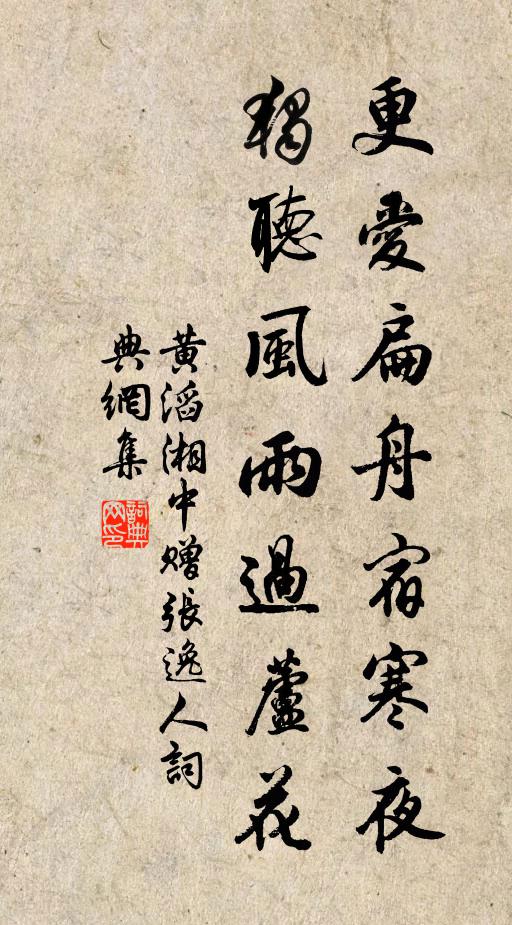 更愛扁舟宿寒夜
獨聽風雨過蘆花
黃滔湘中贈張逸人詞
典網集
詞典
网印